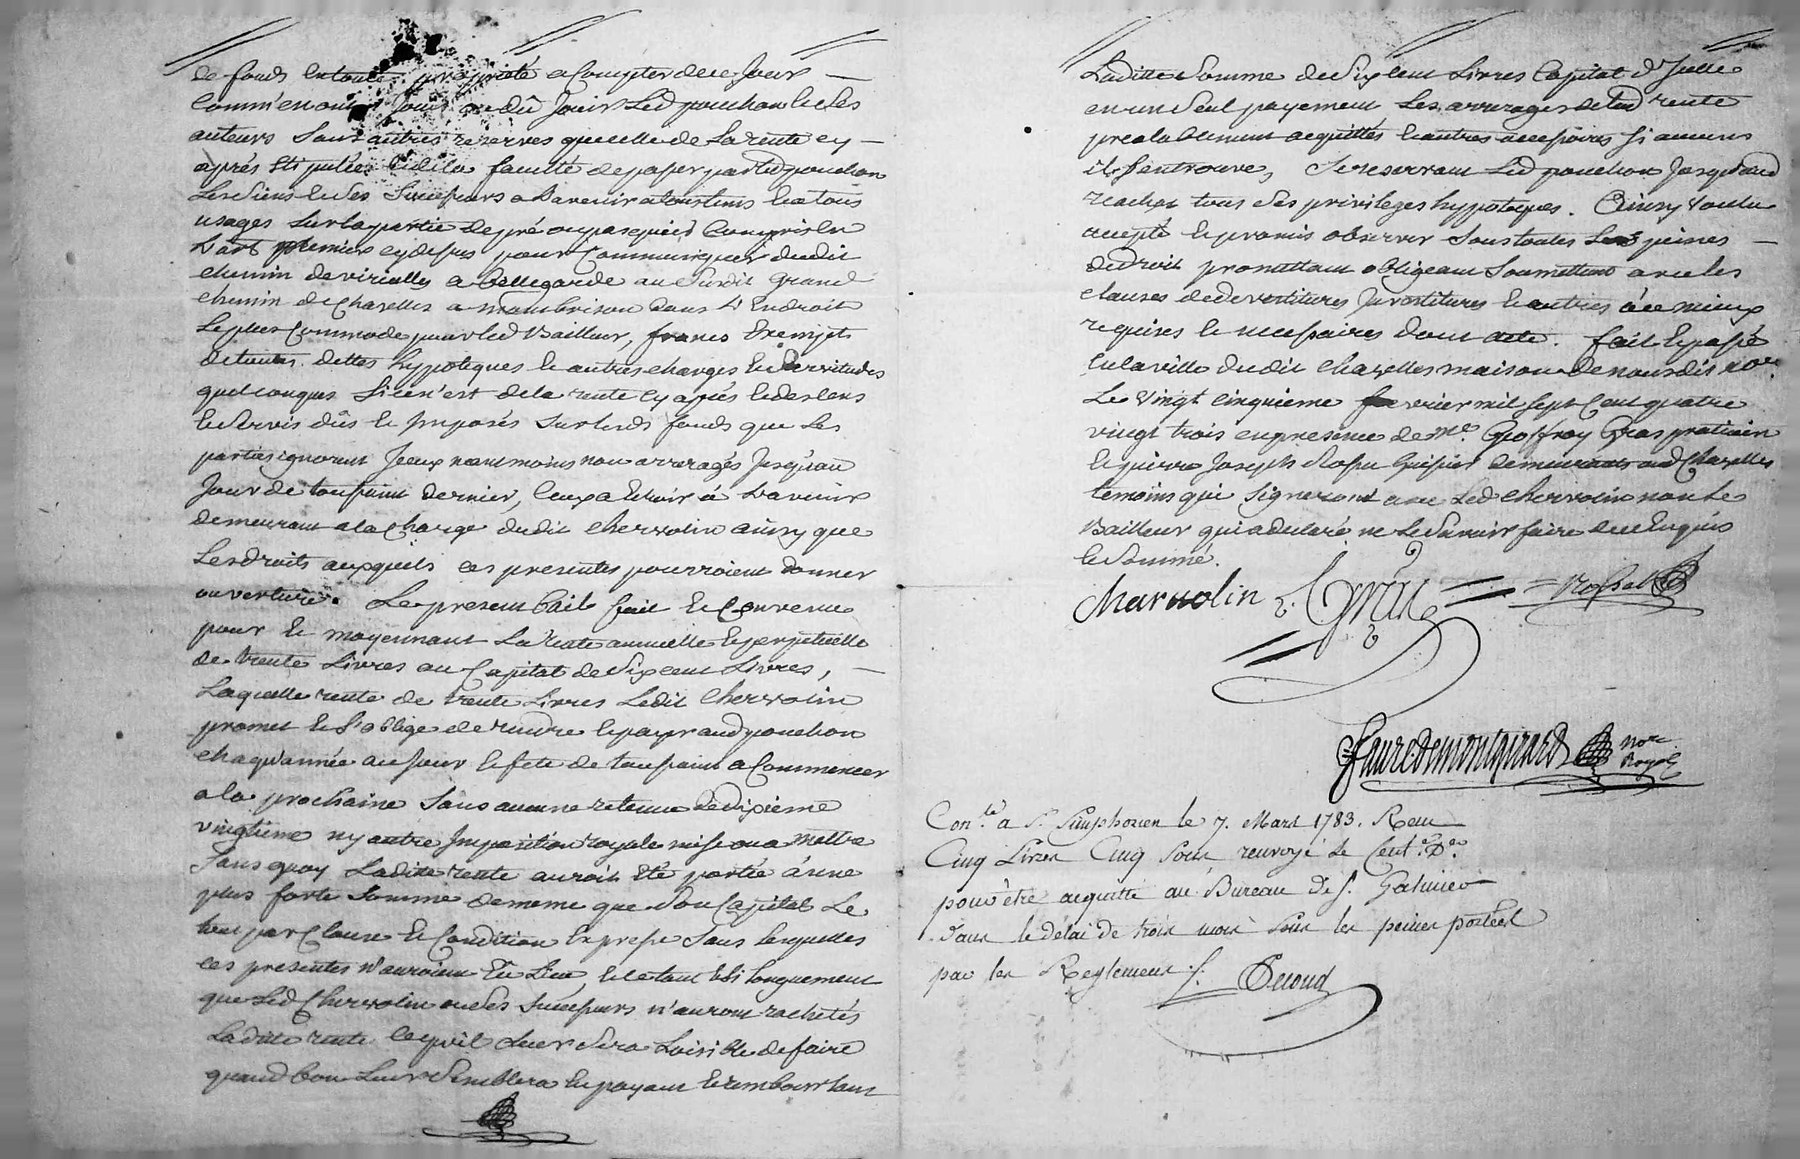 de fonds en toute propriété a Compter de ce Jour
Comm'en ont Joui ou dû Jouir Led pouchon & ses
auteurs Sans autres reserves que celle de La rente cy
aprés Stipulée & de la faculté de passer par Led pouchon
Les Siens & Ses Successeurs a L'avenir a tous tems & a tous
usages Sur La partie de pré ou pasquier Compris en
L'art premier cy dessus pour Communiquer dudit
chemin de viricelles a Bellegarde au Susdit grand
chemin de Chazelles a montbrison dans L'Endroit
Le plus Commode pour led Bailleur, francs Exempts
de toutes dettes hypoteques & autres charges & Servitudes
quelconques Si ce n'est de la rente cy aprés & des cens
& Servis dûs & Imposés Sur lesds fonds que Les
parties ignorent Jceux neantmoins non arreragés Jusqu'au
Jour de toussaint dernier, ceux a Echoir à L'avenir
demeurant a la charge dudit chervolin ainsy que
Les droits auxquels ces presentes pourroient donner
ouverture. Le present bail fait & Convenu
pour & moyennant La rente annuelle & perpetuelle
de trente Livres au Capital de Six cent Livres,
Laquelle rente de trente Livres Ledit Chervolin
promet & S'oblige de rendre & payer aud pouchon
chaqu'année au Jour & fete de toussaint a Commencer
a la prochaine Sans aucune retenue de dixieme
vingtieme ny autre Imposition royale mise ou a mettre
Sans quoy Ladite rente auroit Eté portée à une
plus forte Somme de meme que Son Capital Le
tout par Clause & Condition Expresse Sans lesquelles
ces presentes n'auroient Eu Lieu & ce tant & Si longuement
que Led Chervolin ou Ses Successeurs n'auront rachetés
Ladite rente ce qu'il Leur Sera Loisible de faire
quand bon Leur Semblera En payant & remboursant
Laditte Somme de Six Cent Livres Capital d'Jcelle
en un Seul payement Les arrerages de Lad rente
prealablement acquittés & autres accessoires Si aucuns
il S'en trouve, Se reservant Led pouchon Jusqu'aud
rachat tous Ses privileges hypoteques. Ainsy voulu
accepté & promis observer Sous toutes Les peines
de droit promettant obligeant Soumettant avec les
clauses de devestitures Jnvestitures & autres à ce mieux
requises & necessaires dont acte. fait & passé
En la ville dudit chazelles maison de nous dit nore.
Le vingt cinquieme fevrier mil Sept Cent quatre
vingt trois en presence de Me. Geoffroy Gras praticien
& pierre Joseph huissier demeurants aud Chazelles
temoins qui Signeront avec Led chervolin non Le
Bailleur qui a declaré ne Le Savoir faire de ce Enquis
& Sommé.
Gras
fauredemontgirard nore Royal
Con.lé a St. Simphorien le 7. Mars 1783. Recu
Cinq Livres Cinq Sous renvoyé le Cent.e D.er
pour être acquitté au Bureau de St. Galmier
dans le délai de trois mois Sous les peines portées
par les Reglemens.